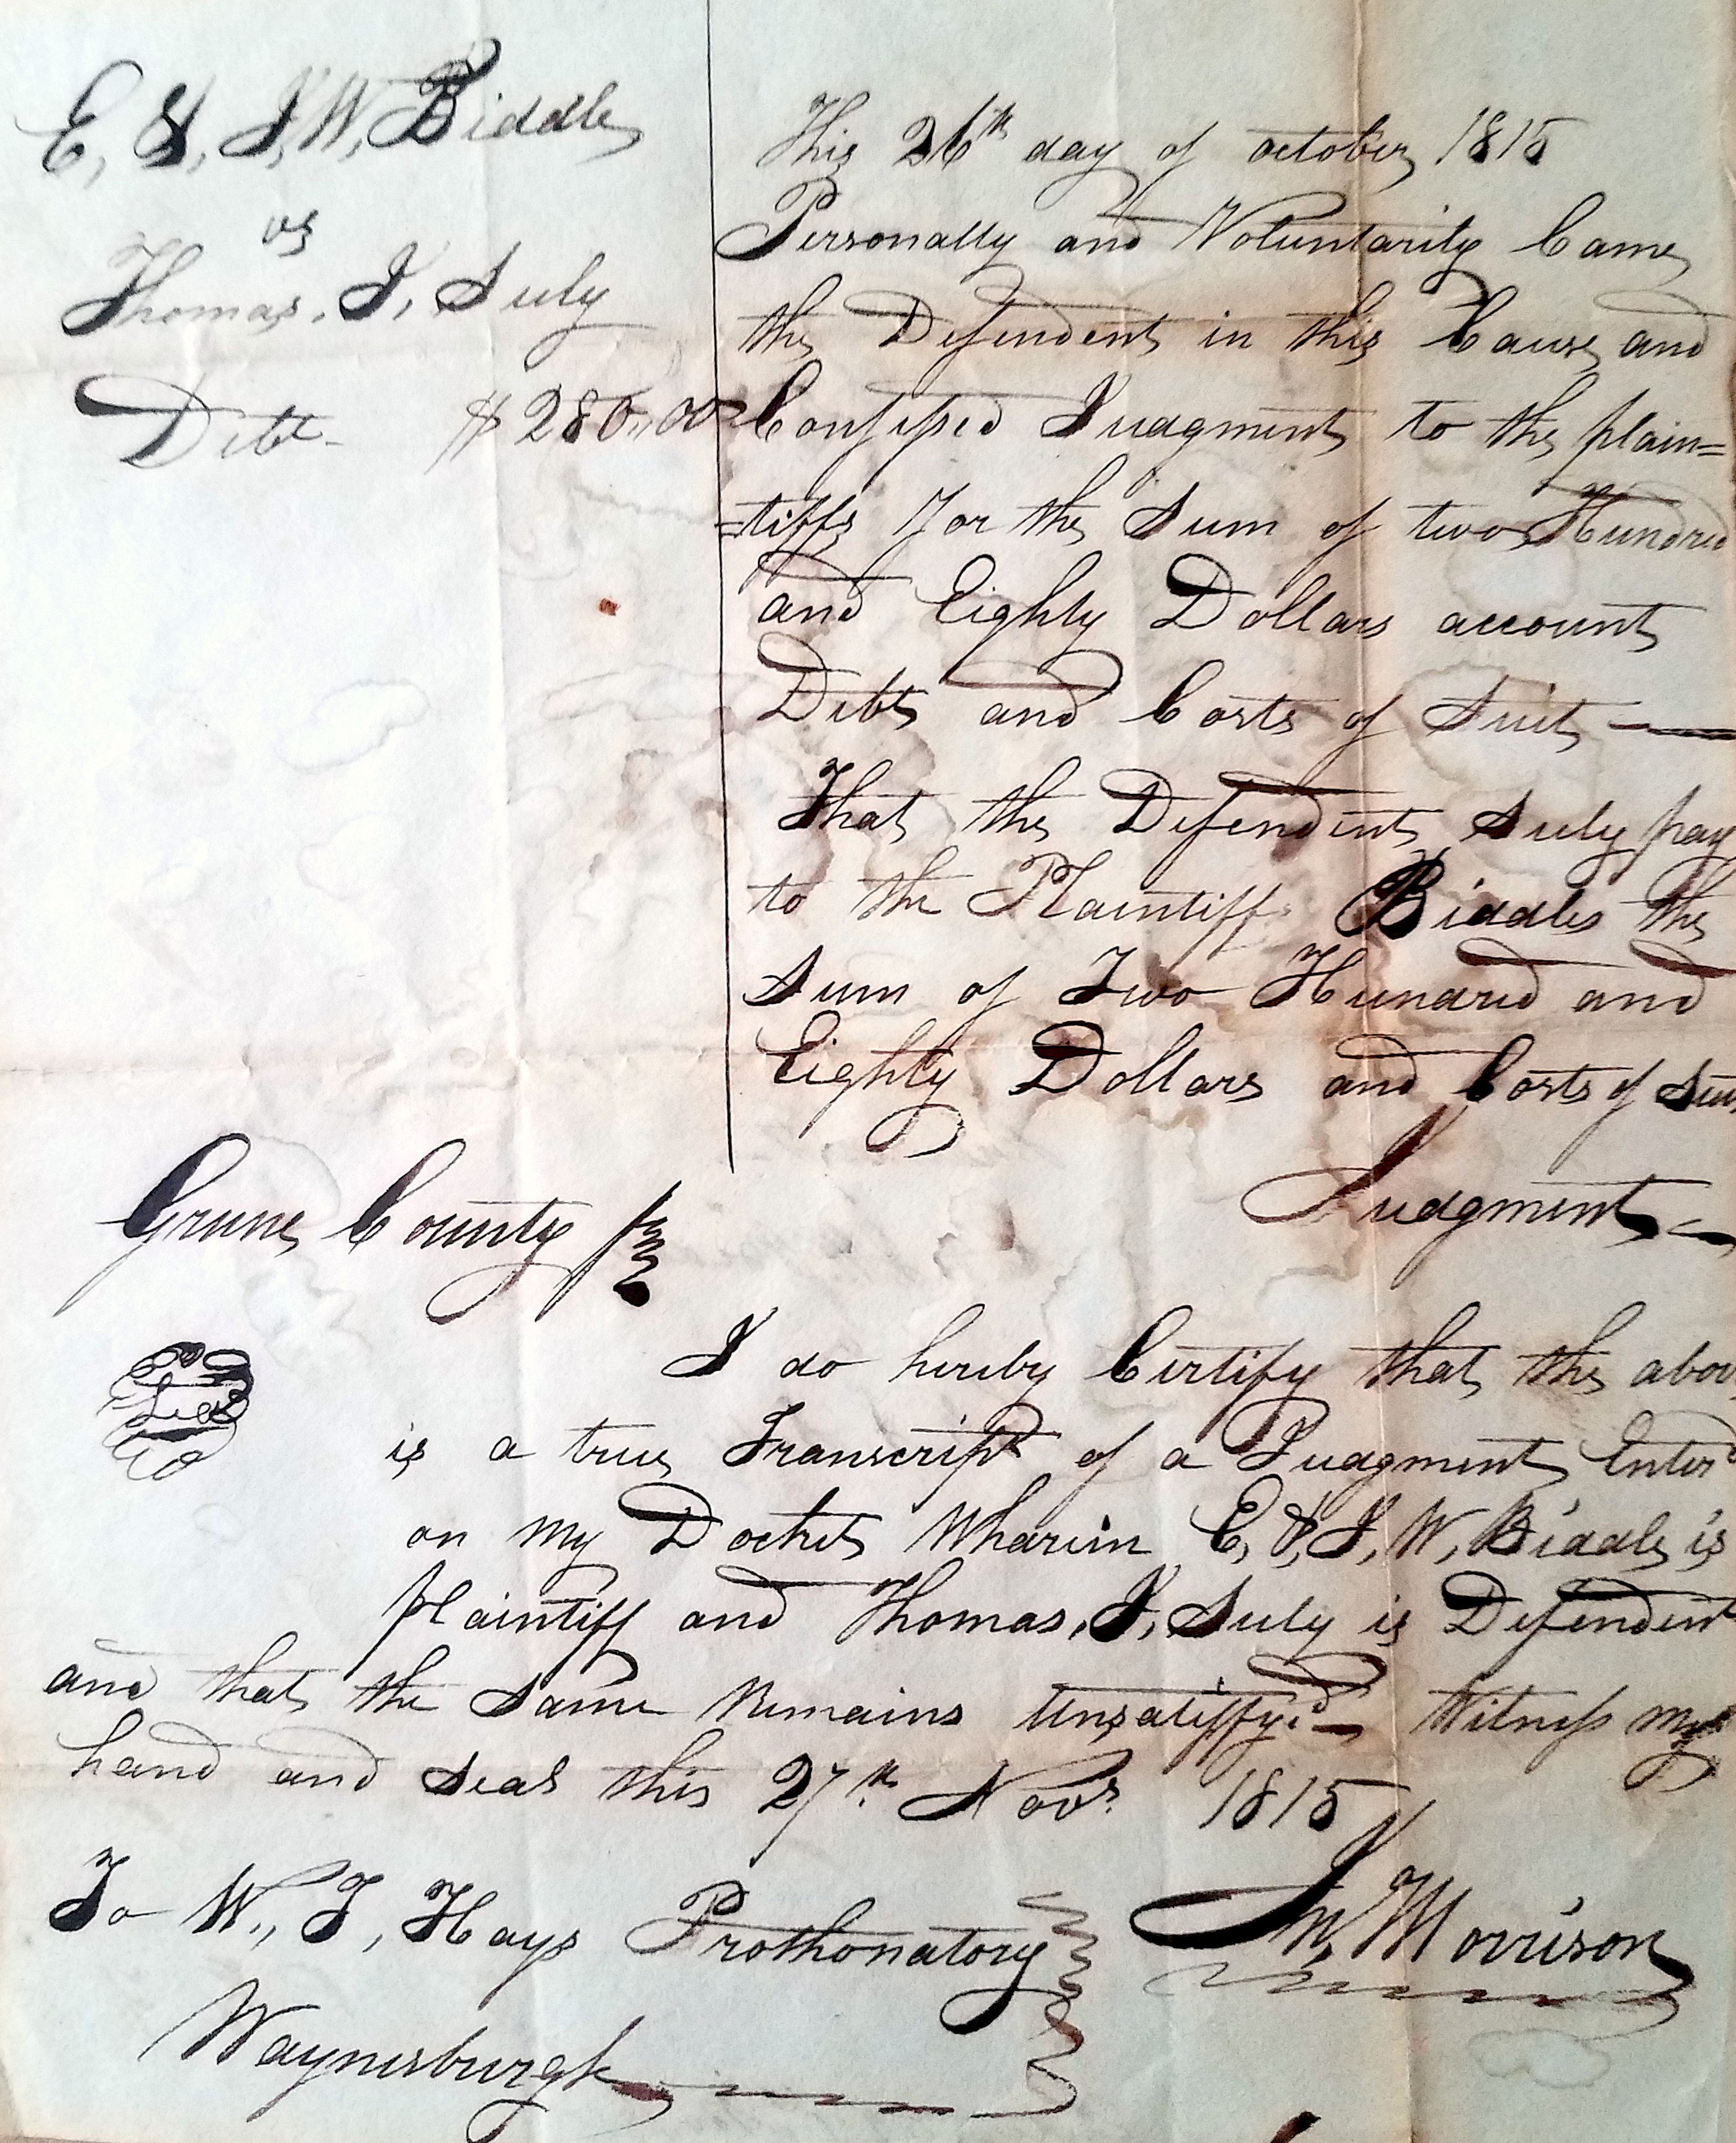 E, & J, W, Biddle
vs
Thomas, J, Suly
Debt $280,,00
This 26th day of october 1815
Personally and Voluntarily Came
the Defendent in this Cause and
Confessed Judgment to the plain=
=tiffs For the Sum of two Hundred
and Eighty Dollars account
Debt and Costs of Suit —
That the Defendent Suly pay
to the Plaintiff Biddles the
Sum of Two Hundred and
Eighty Dollars and Costs of Sui
Judgment —
Greene County
Seal
I do hereby Certify that the abov
is a true Transcript of a Judgment Enterd
on my Docket Wharein E, & J, W, Biddle is
plaintiff and Thomas, J, Suly is Defendent
and that the Same Remains Unsatisfyed — Witness my
hand and Seal this 27th Novr 1815
To W,, T, Hays Prothonatory
Waynesburgh
Morrison